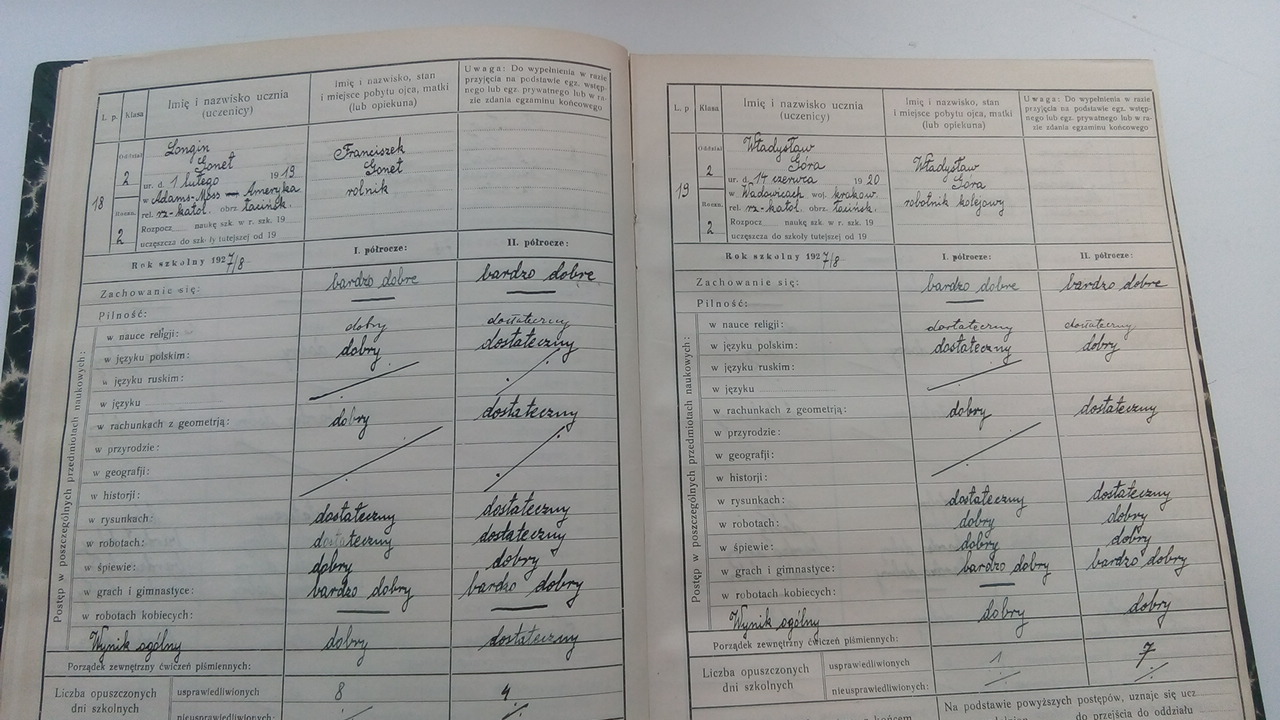 L. p.
Klasa
Imię i nazwisko ucznia
(uczenicy)
Imię i nazwisko, stan
i miejsce pobytu ojca, matki
(lub opiekuna)
Uwaga: Do wypełnienia w razie
przyjęcia na podstawie egz. wstęp-
nego lub egz. prywatnego lub w ra-
zie zdania egzaminu końcowego
18
Oddział
2
Roczn.
2
Longin
Gonet
ur. d. 1 lutego 1919
w Adams-Mass — Ameryka
rel. rz-katol. obrz. łacińsk.
Rozpocz. naukę szk. w r. szk. 19
uczęszcza do szkoły tutejszej od 19
Franciszek
Gonet
rolnik
Rok szkolny 1927/8
I. półrocze:
II. półrocze:
Zachowanie się: bardzo dobre bardzo dobre
Pilność:
Postęp w poszczególnych przedmiotach naukowych:
w nauce religji: dobry dostateczny
w języku polskim: dobry dostateczny
w języku ruskim:
w języku
w rachunkach z geometrją: dobry dostateczny
w przyrodzie:
w geografji:
w historji:
w rysunkach: dostateczny dostateczny
w robotach: dostateczny dostateczny
w śpiewie: dobry dobry
w grach i gimnastyce: bardzo dobry bardzo dobry
w robotach kobiecych:
Wynik ogólny dobry dostateczny
Porządek zewnętrzny ćwiczeń piśmiennych:
Liczba opuszczonych
dni szkolnych
usprawiedliwionych 8 4
nieusprawiedliwionych
L. p.
Klasa
Imię i nazwisko ucznia
(uczenicy)
Imię i nazwisko, stan
i miejsce pobytu ojca, matki
(lub opiekuna)
Uwaga: Do wypełnienia w razie
przyjęcia na podstawie egz. wstęp-
nego lub egz. prywatnego lub w ra-
zie zdania egzaminu końcowego
19
Oddział
2
Roczn.
2
Władysław
Góra
ur. d. 14 czerwca 1920
w Wadowicach woj. krakow.
rel. rz-katol. obrz. łacińsk.
Rozpocz. naukę szk. w r. szk. 19
uczęszcza do szkoły tutejszej od 19
Władysław
Góra
robotnik kolejowy
Rok szkolny 1927/8
I. półrocze:
II. półrocze:
Zachowanie się: bardzo dobre bardzo dobre
Pilność:
Postęp w poszczególnych przedmiotach naukowych:
w nauce religji: dostateczny dostateczny
w języku polskim: dostateczny dobry
w języku ruskim:
w języku
w rachunkach z geometrją: dobry dostateczny
w przyrodzie:
w geografji:
w historji:
w rysunkach: dostateczny dostateczny
w robotach: dobry dobry
w śpiewie: dobry dobry
w grach i gimnastyce: bardzo dobry bardzo dobry
w robotach kobiecych:
Wynik ogólny dobry dobry
Porządek zewnętrzny ćwiczeń piśmiennych:
Liczba opuszczonych
dni szkolnych
usprawiedliwionych 1 7
nieusprawiedliwionych
Na podstawie powyższych postępów, uznaje się ucz
do przejścia do oddziału